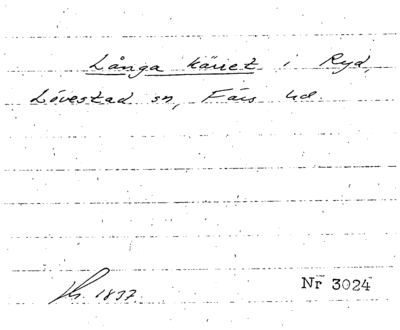 Långa käret i Ryd,
Lövestad sn, Färs hd.
1897.
Nr 3024